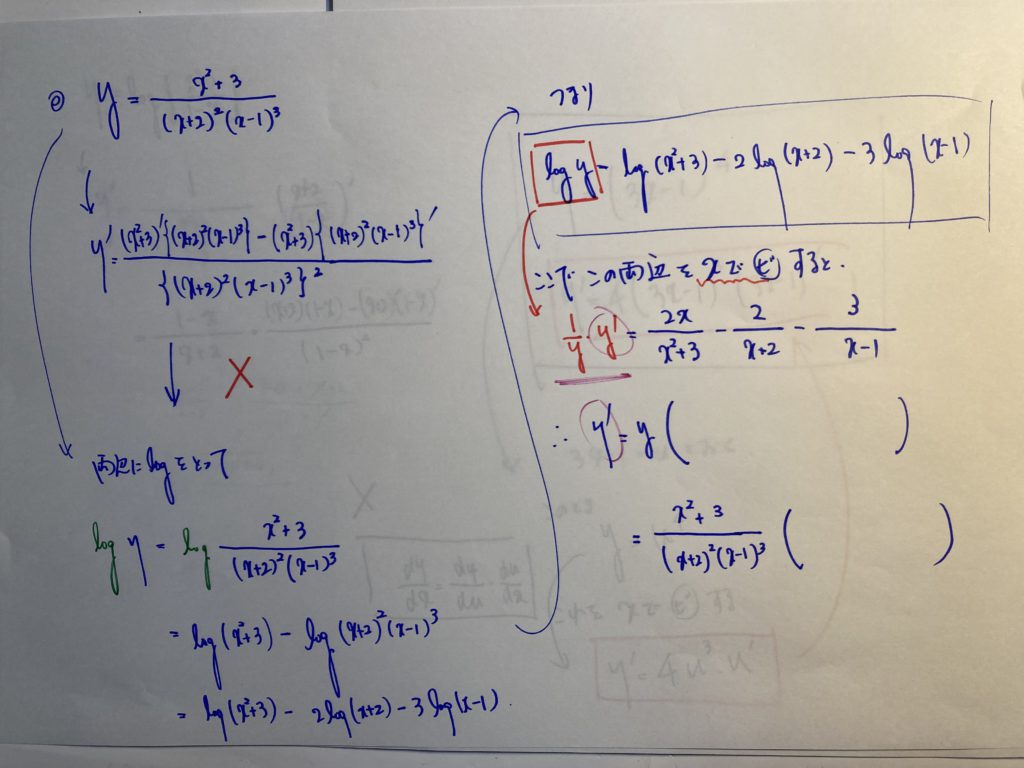 ◎ y = (x²+3)/((x+2)²(x-1)³)
↓
y' = ((x²+3)'{(x+2)²(x-1)³} - (x²+3){(x+2)²(x-1)³}')/{(x+2)²(x-1)³}²
↓ ×
両辺に log をとって
log y = log (x²+3)/((x+2)²(x-1)³)
= log(x²+3) - log(x+2)²(x-1)³
= log(x²+3) - 2log(x+2) - 3log(x-1).
つまり
log y = log(x²+3) - 2log(x+2) - 3log(x-1)
ここで この両辺を xで ⓑ すると.
1/y y' = 2x/(x²+3) - 2/(x+2) - 3/(x-1)
∴ y' = y ( )
= (x²+3)/((x+2)²(x-1)³) ( )